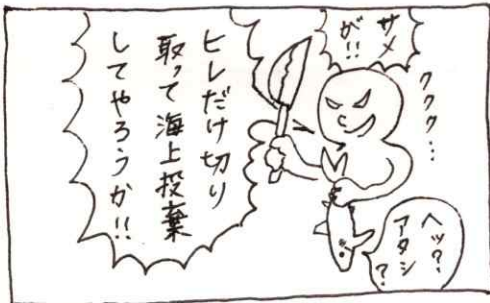 サメ
が!!
ククク…
ヒレだけ切り
取って海上投棄
してやろうか!!
ヘッ?
アタシ
?